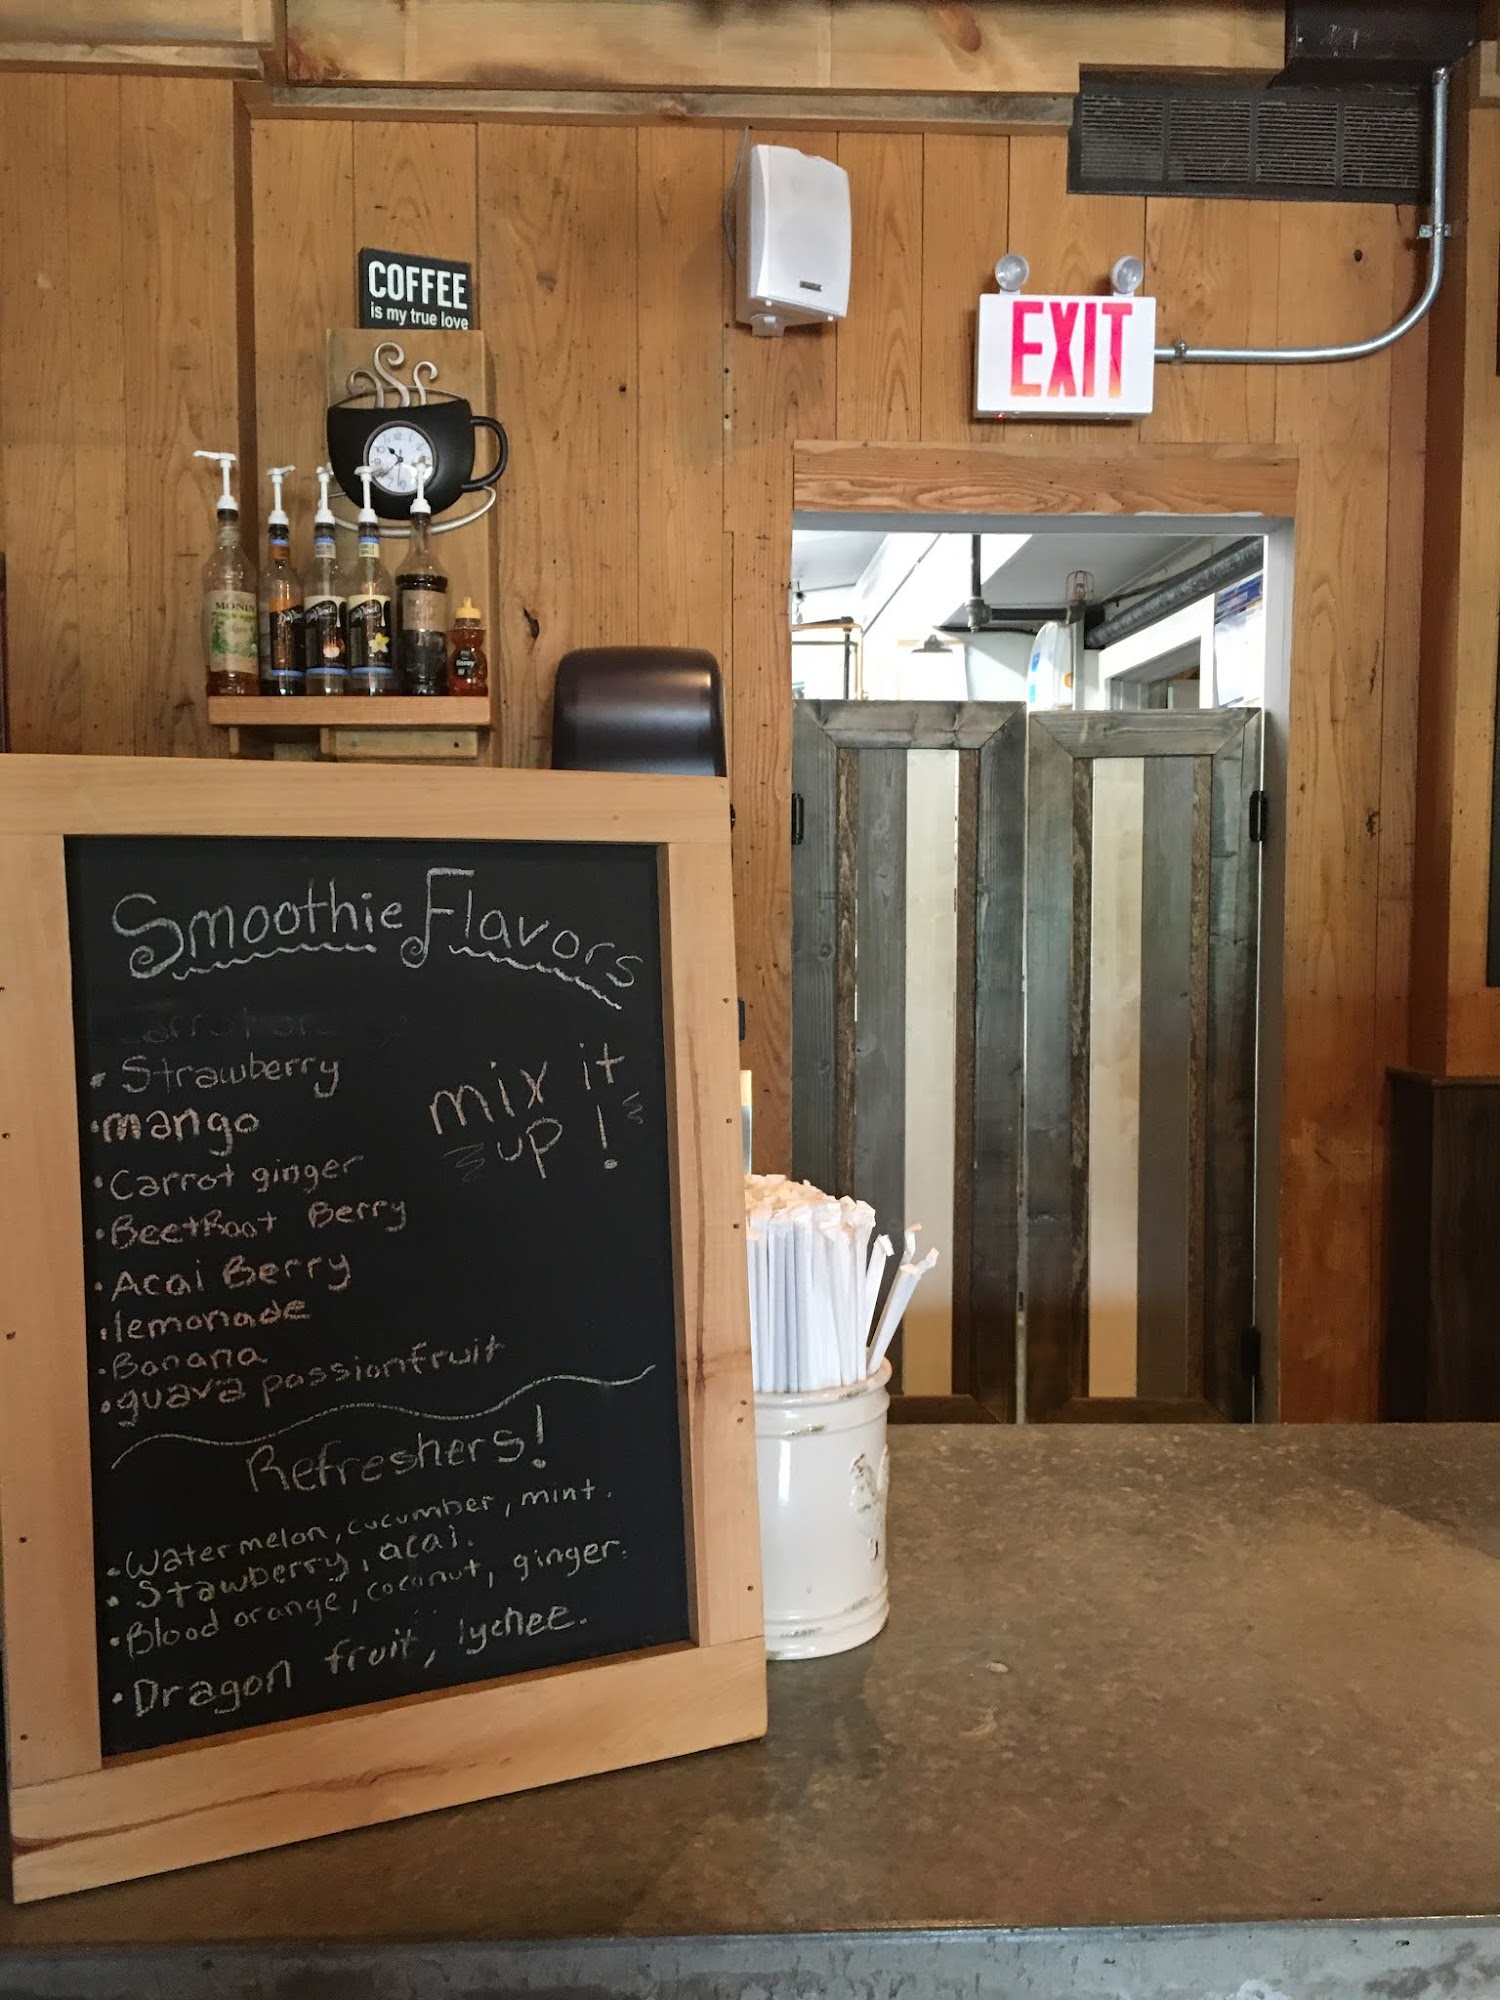 COFFEE
is my true love
EXIT
MONIN
DaVinci
DaVinci
DaVinci
Honey
Smoothie Flavors
• Strawberry
• mango
• Carrot ginger
• BeetRoot Berry
• Acai Berry
• lemonade
• Banana
• guava passionfruit
mix it
up !
Refreshers!
• Watermelon, cucumber, mint.
• Stawberry, acai.
• Blood orange, coconut, ginger.
• Dragon fruit, lychee.